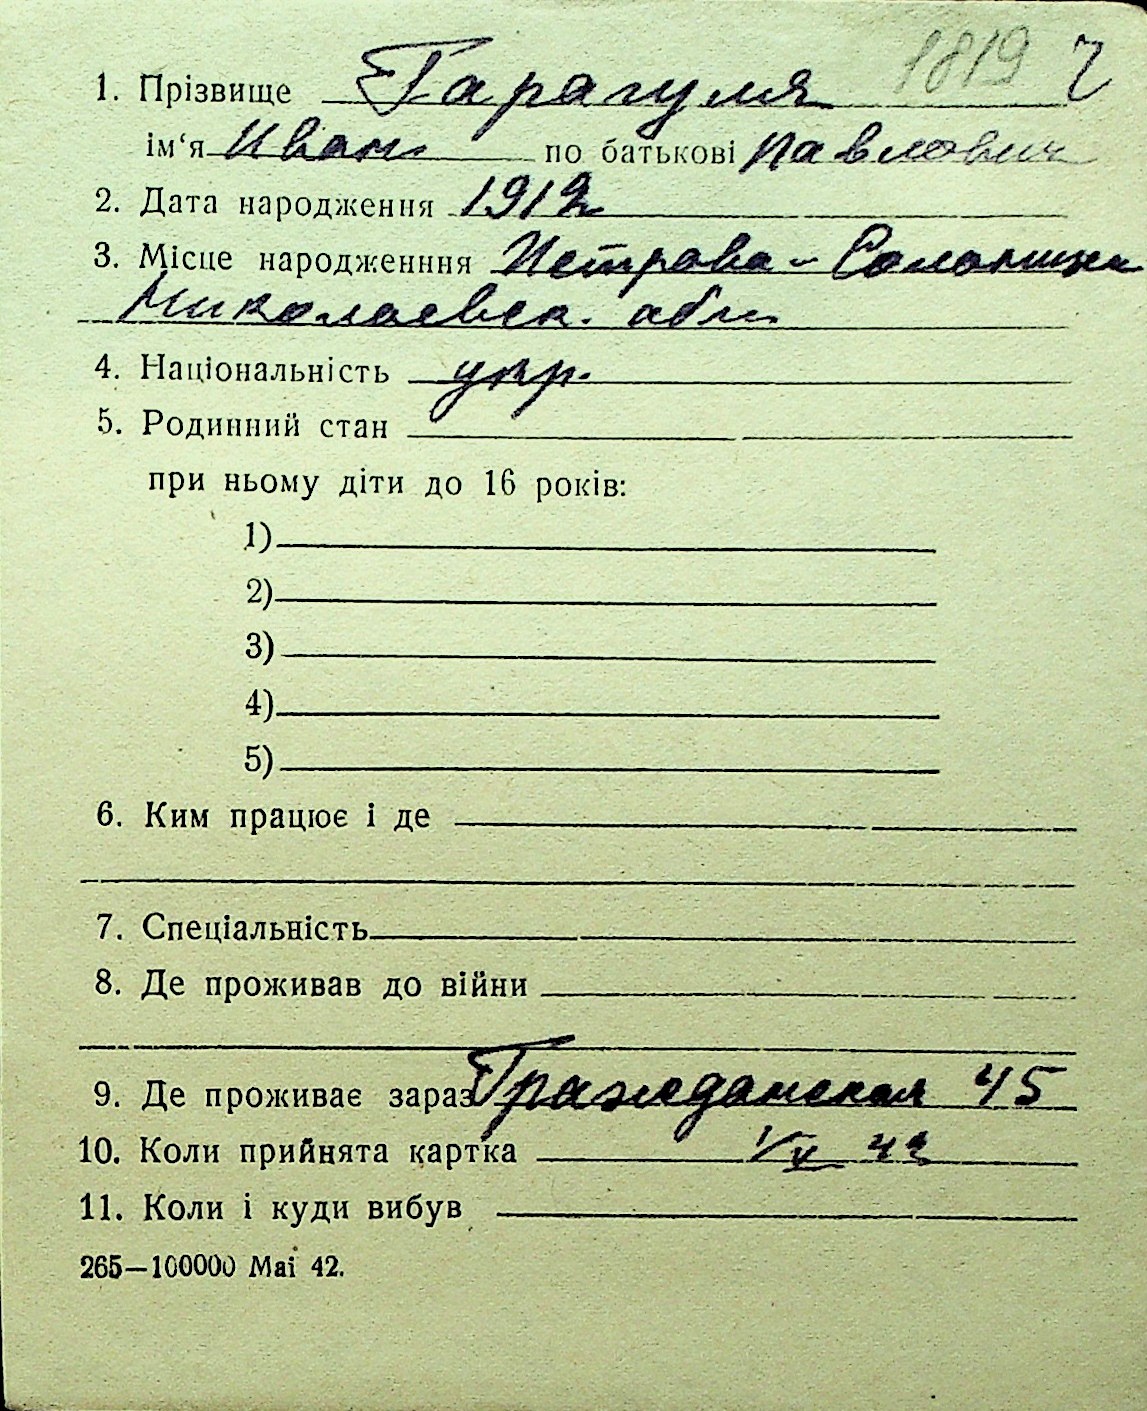 1819 г
1. Прізвище Гарагуля
ім‘я Иван по батькові Павлович
2. Дата народження 1912
3. Місце народженння Петрово-Солониха
Николаевск. обл.
4. Національність укр.
5. Родинний стан
при ньому діти до 16 років:
1)
2)
3)
4)
5)
6. Ким працює і де
7. Спеціальність
8. Де проживав до війни
9. Де проживає зараз Гражданская 45
10. Коли прийнята картка 1/V 42
11. Коли і куди вибув
265—100000 Mai 42.